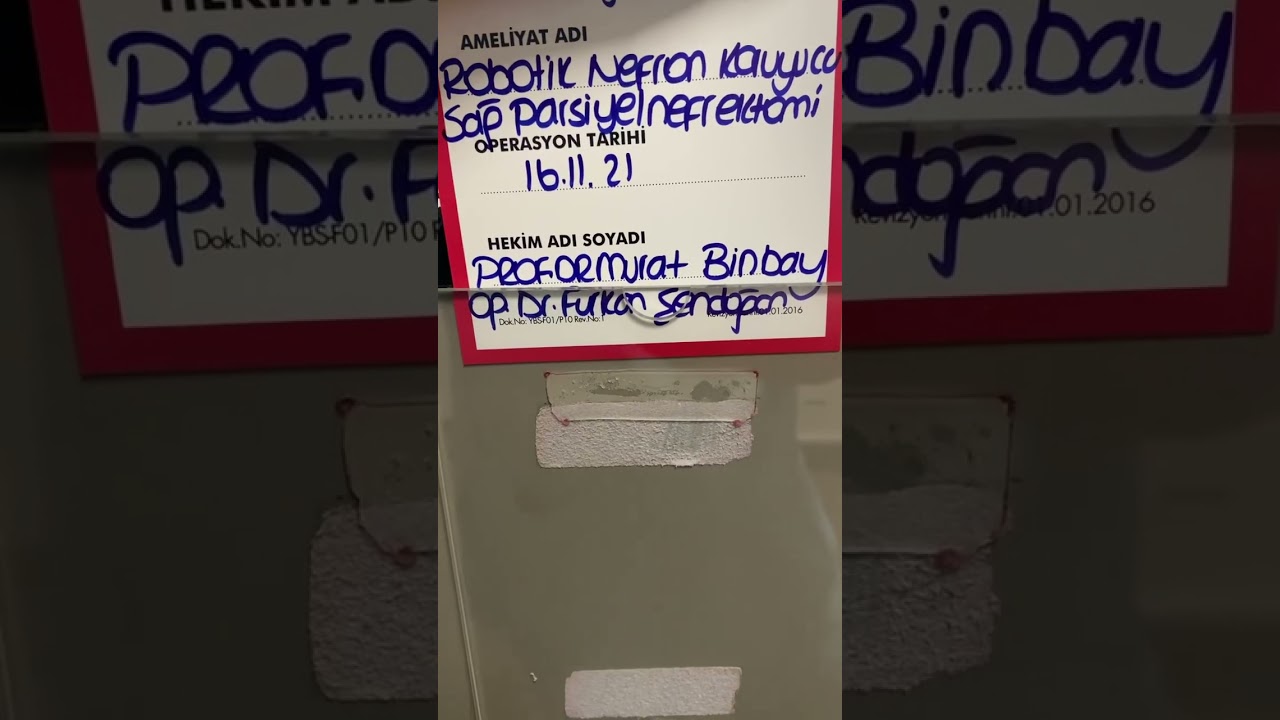 AMELİYAT ADI
Robotik Nefron Koruyucu
Sağ Parsiyel nefrektomi
OPERASYON TARİHİ
16.11.21
HEKİM ADI SOYADI
PROF DR Murat Binbay
Op. Dr. Furkan Şendoğan
Dok.No: YBS-F01/P10 Rev.No:1
01.01.2016